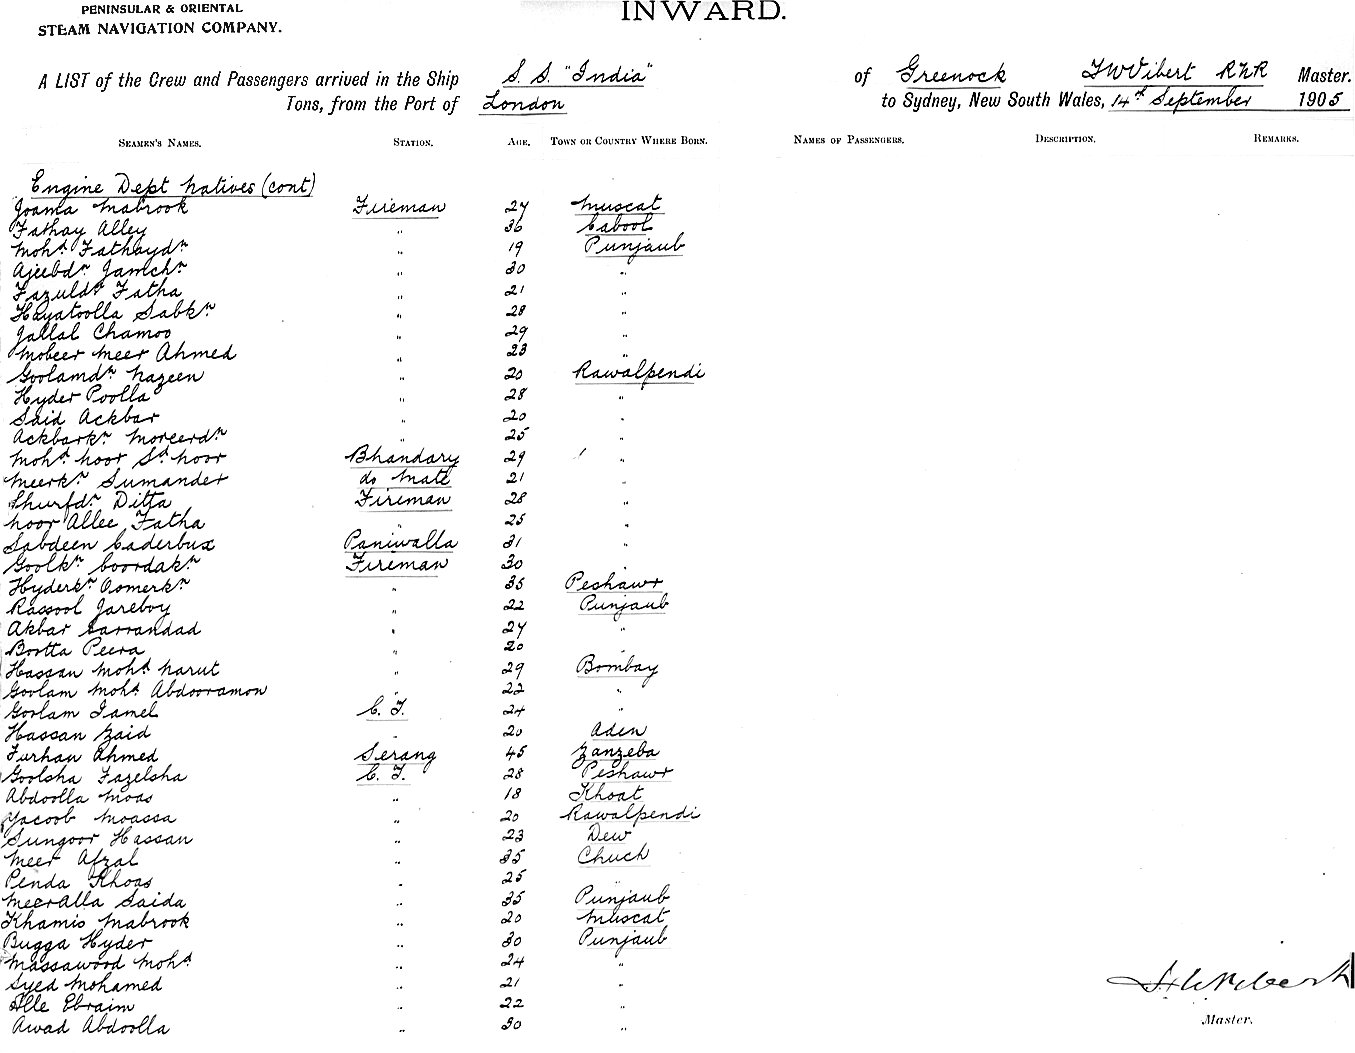 PENINSULAR & ORIENTAL
STEAM NAVIGATION COMPANY.
INWARD.
A LIST of the Crew and Passengers arrived in the Ship S. S. "India" of Greenock Vibert RNR Master.
Tons, from the Port of London to Sydney, New South Wales, 14th September 1905
SEAMEN'S NAMES. STATION. AGE. TOWN OR COUNTRY WHERE BORN. NAMES OF PASSENGERS. DESCRIPTION. REMARKS.
Engine Dept Natives (cont)
Joama Mabrook Fireman 27 Muscat
Fathay Alley " 36 Cabool
Mohd Fathaydn " 19 Punjaub
Ajeebdn Jamchn " 30 "
Fazuldn Fatha " 21 "
Hayatoolla Sabkn " 28 "
Jallal Chamoo " 29 "
Mobeer Meer Ahmed " 23 "
Goolamdn Nazeen " 20 Rawalpendi
Hyder Poolla " 28 "
Said Ackbar " 20 "
Ackbarkn Morceerdn " 25 "
Mohd Noor Sd Noor Bhandary 29 "
Meerkn Sumander do Mate 21 "
Shurfdn Ditta Fireman 28 "
Noor Allee Fatha " 25 "
Sabdeen Caderbux Paniwalla 31 "
Goolkn Coordakn Fireman 30 "
Hyderkn Oomerkn " 35 Peshawr
Rassool Jareboy " 22 Punjaub
Akbar Sarrandad " 27 "
Bootta Peera " 20 "
Hassan Mohd Narut " 29 Bombay
Goolam Mohd Abdooramon " 22 "
Goolam Jamel C. T. 24 "
Hassan Zaid " 20 Aden
Furhan Ahmed Serang 45 Zanzeba
Goolsha Fazelsha C. T. 28 Peshawr
Abdoolla Moas " 18 Khoat
Yacoob Moassa " 20 Rawalpendi
Sungoor Hassan " 23 Dew
Meer Afzal " 35 Chuch
Penda Khoas " 25 "
Meeralla Saida " 35 Punjaub
Khamis Mabrook " 20 Muscat
Bugga Hyder " 30 Punjaub
Massawood Mohd " 24 "
Syed Mohamed " 21 "
Alle Ebraim " 22 "
Awad Abdoolla " 30 "
Master.